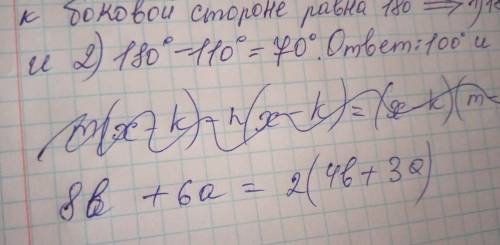 к боковой стороне равна 180 ⟹ 1)
и 2) 180° - 110° = 70°. Ответ: 100° и
m(x-k)-n(x-k)=(x-k)(m-
8b + 6a = 2(4b + 3a)